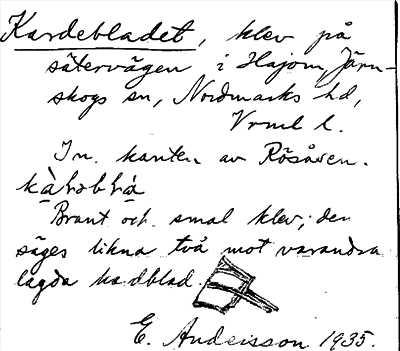 Kardebladet, klev på
sätervägen i Hajom, Järn-
skogs sn, Nordmarks hd,
Vrml l.
I n. kanten av Rösåsen.
Brant och smal klev; den
säges likna två mot varandra
lagda kardblad.
E. Andersson 1935.